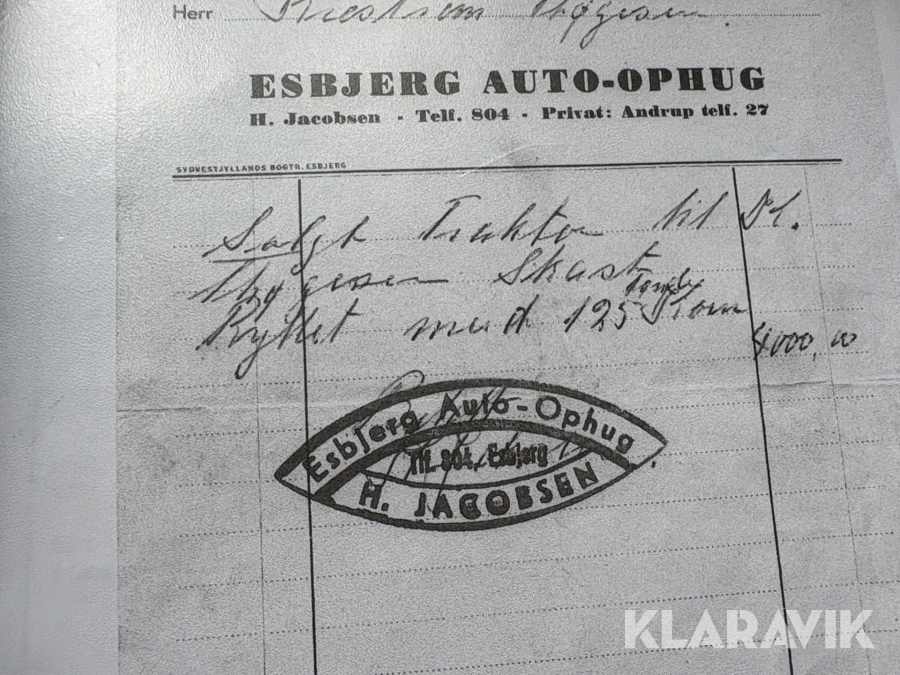 Herr Kristian Thøgesen.
ESBJERG AUTO-OPHUG
H. Jacobsen - Telf. 804 - Privat: Andrup telf. 27
SYDVESTJYLLANDS BOGTR. ESBJERG
Solgt Traktor til DK.
Thygesen Skast
med 125
4000,00
Esbjerg Auto-Ophug
Tlf. 804, Esbjerg
H. JACOBSEN
KLARAVIK